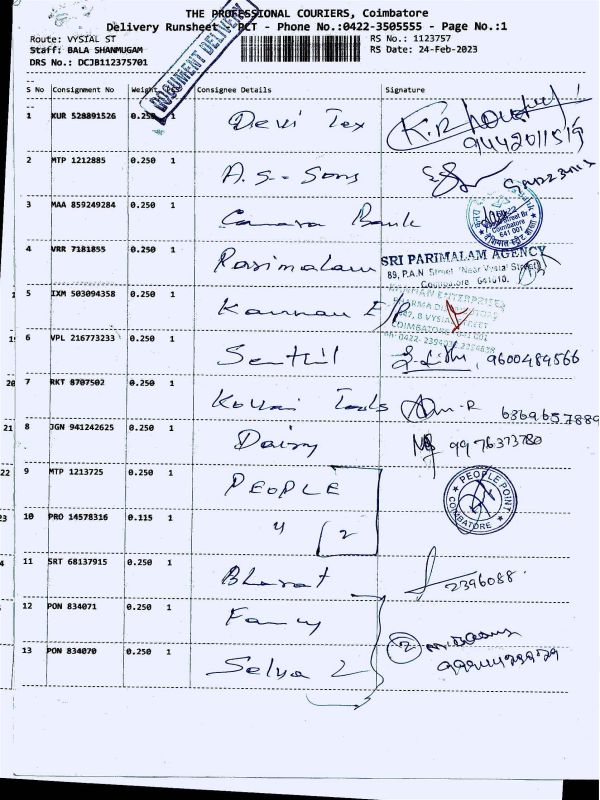 THE PROFESSIONAL COURIERS, Coimbatore
Delivery Runsheet - PCT - Phone No.:0422-3505555 - Page No.:1
Route: VYSIAL ST RS No.: 1123757
Staff: BALA SHANMUGAM RS Date: 24-Feb-2023
DRS No.: DCJB112375701
DOCUMENT DELIVERY
S No Consignment No Weight PCS Consignee Details Signature
1 KUR 528891526 0.250 Devi Tex
9442011519
2 MTP 1212885 0.250 1 A.S. Sons
3 MAA 859249284 0.250 1 Canara Bank
Coimbatore
641 001
4 VRR 7181855 0.250 1 Parimalam SRI PARIMALAM AGENCY
89, P.A.N Street (Near Vysial Street)
5 IXM 503094358 0.250 1 Kannan E/P KANNAN ENTERPRISES
VYSIAL STREET
COIMBATORE - 641 001
6 VPL 216773233 0.250 1 Senthil 9600484566
20 7 RKT 8707502 0.250 1 Kovai Tools 6369657889
21 8 JGN 941242625 0.250 1 Daisy 9976373780
22 9 MTP 1213725 0.250 1 PEOPLE PEOPLE POINT
COIMBATORE
10 PRO 14578316 0.115 1 " 2
11 SRT 68137915 0.250 1 Bharat 2396088
12 PON 834071 0.250 1 Fancy 2
13 PON 834070 0.250 1 Selya 2